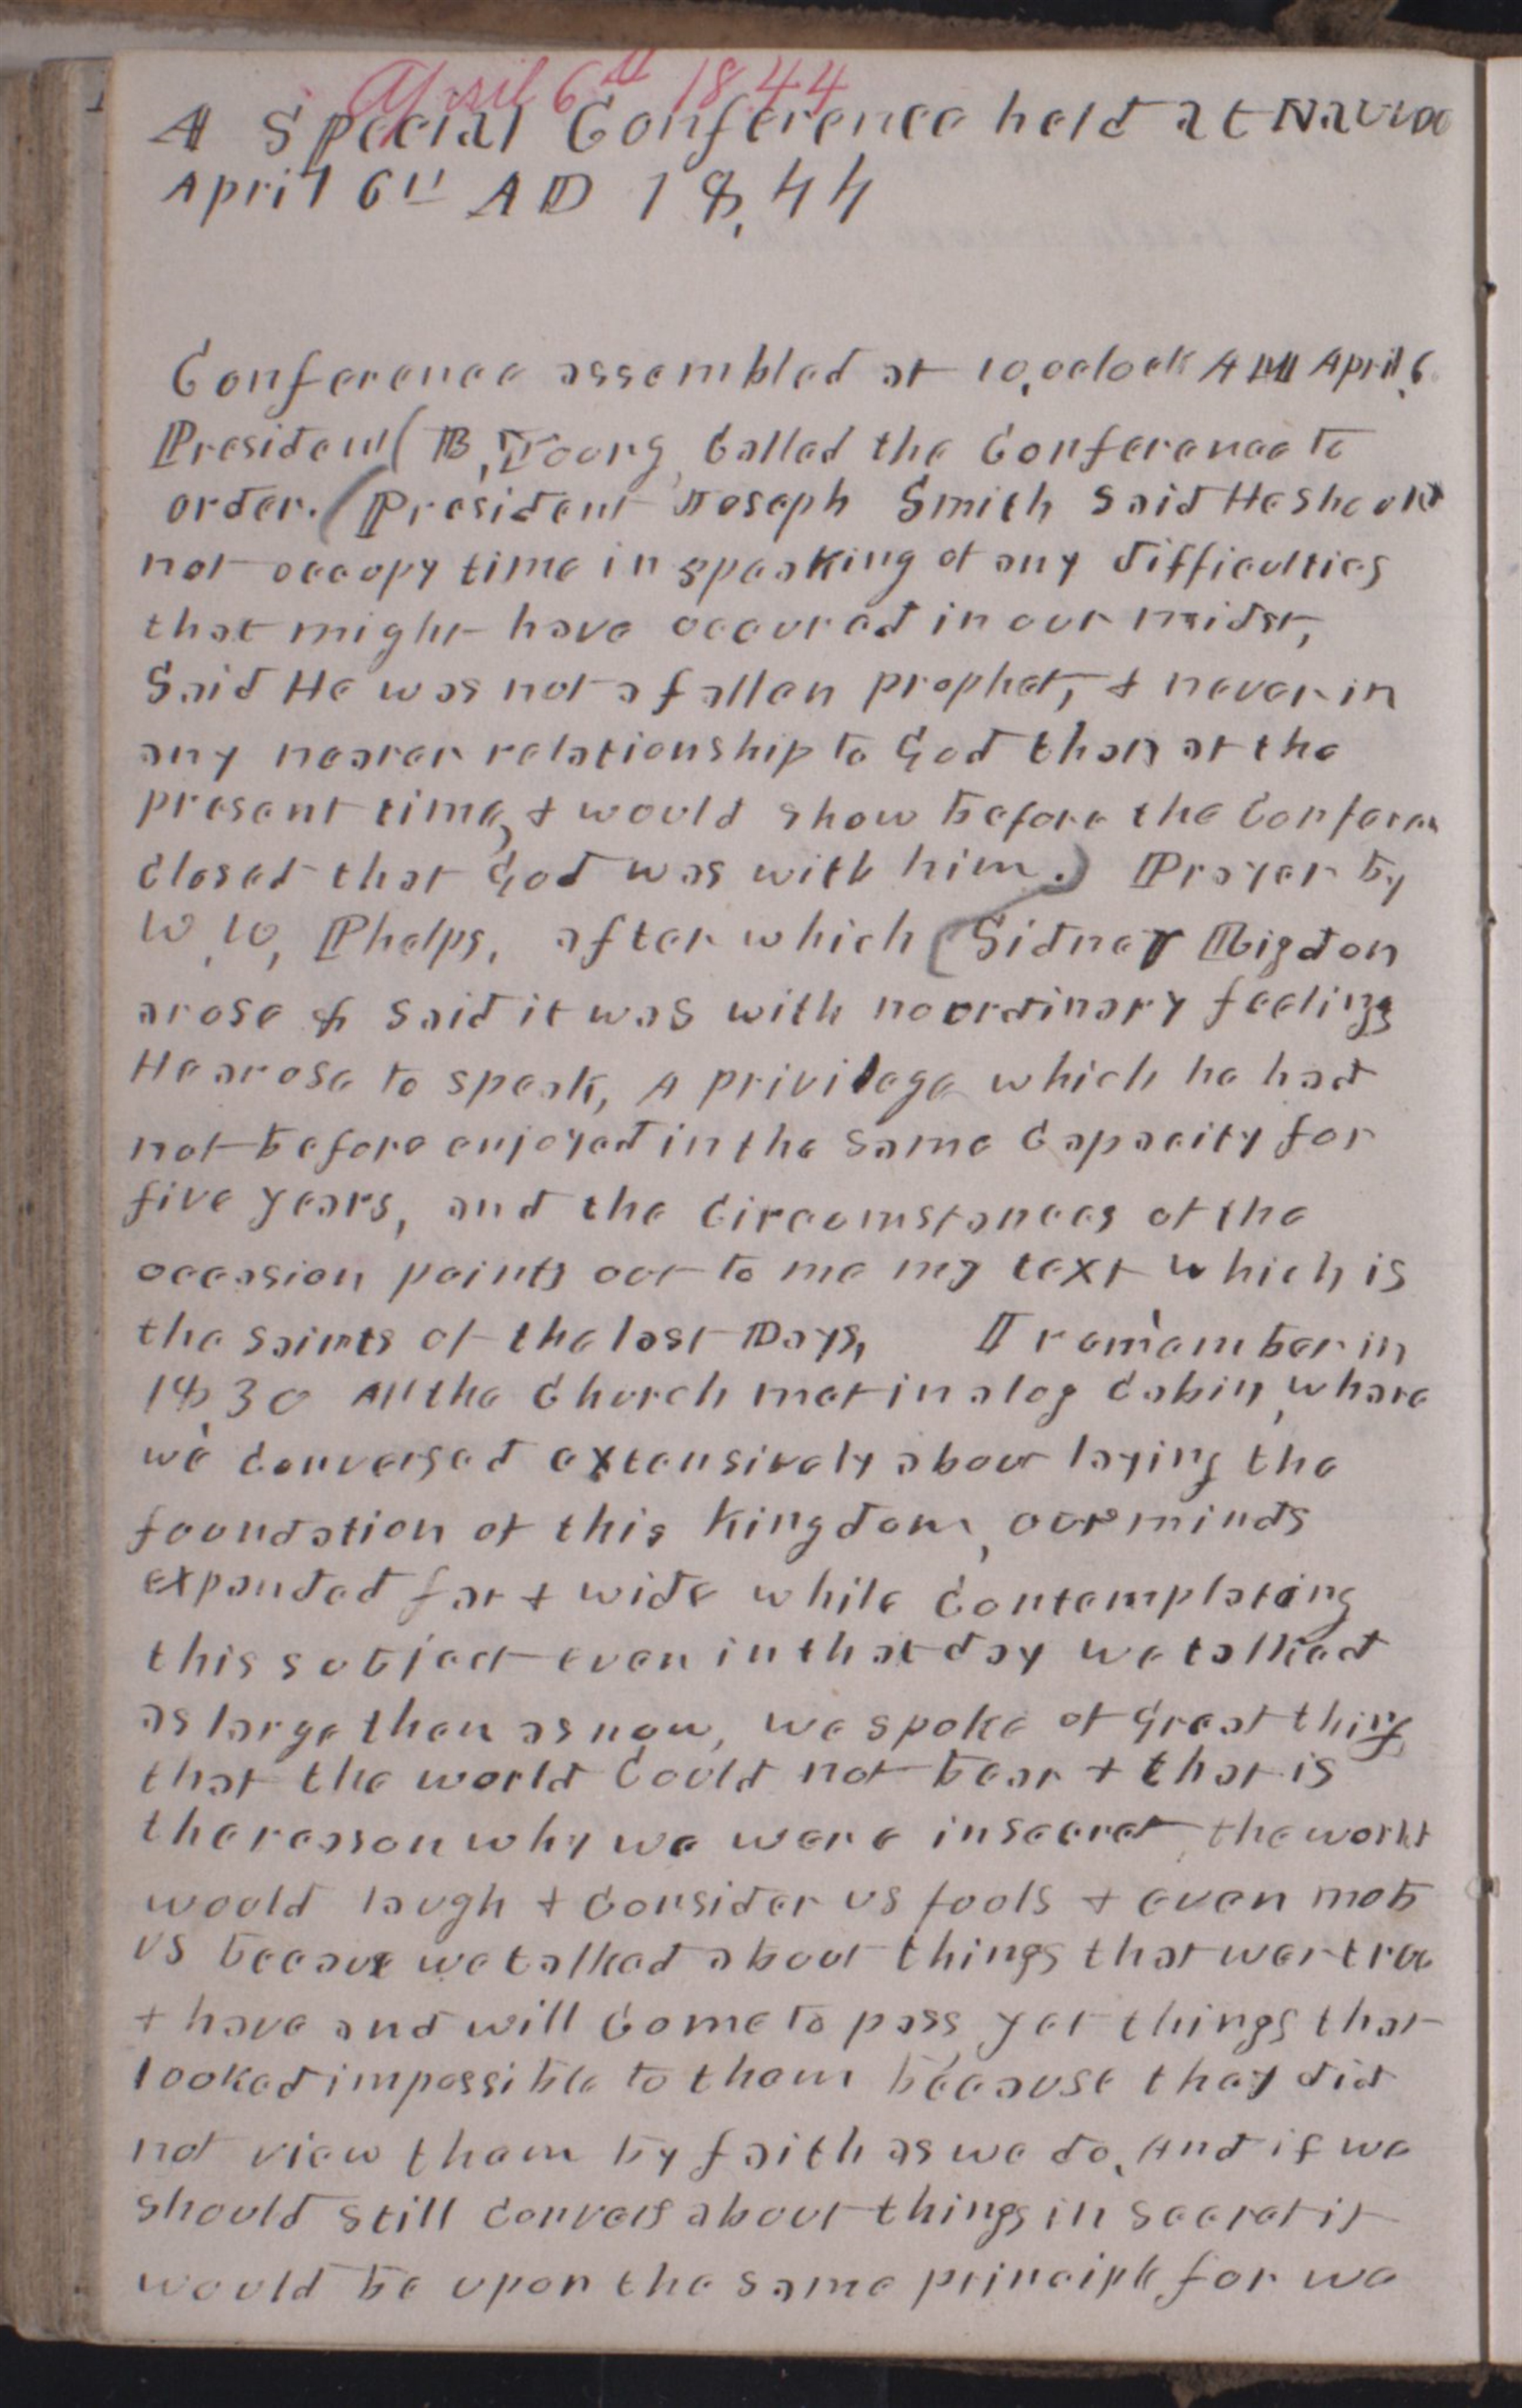 April 6th 1844
A Special Conference held at Nauvoo
April 6th AD 18,44
Conference assembled at 10,oclock AM April,6
President (B, Young, Called the Conference to
order. (President Joseph Smith Said He should
not occupy time in speaking of any difficulties
that might have occured in our midst,
Said He was not a fallen prophet, & never in
any nearer relationship to God than at the
present time, & would show before the Conferen
Closed that God was with him.) Prayer by
W, W, Phelps, after which (Sidney Rigdon
arose & Said it was with no ordinary feelings
He arose to speak, A privilege which he had
not before enjoyed in the Same Capacity for
five years, and the Circumstances of the
occasion points out to me my text which is
the Saints of the last Days, I remember in
18,30 All the Church met in a log Cabin, where
we Conversed extensively about laying the
foundation of this Kingdom, our minds
expanded far & wide while Contemplating
this subject even in that day we talked
as large then as now, we spoke of Great things
that the world Could not bear & that is
the reason why we were in secret, the world
would laugh & Consider us fools & even mob
us becaus we talked about things that wer true
& have and will Come to pass yet things that
looked impossible to them because they did
not view them by faith as we do, And if we
should still Convers about things in secret it
would be upon the same principle for we